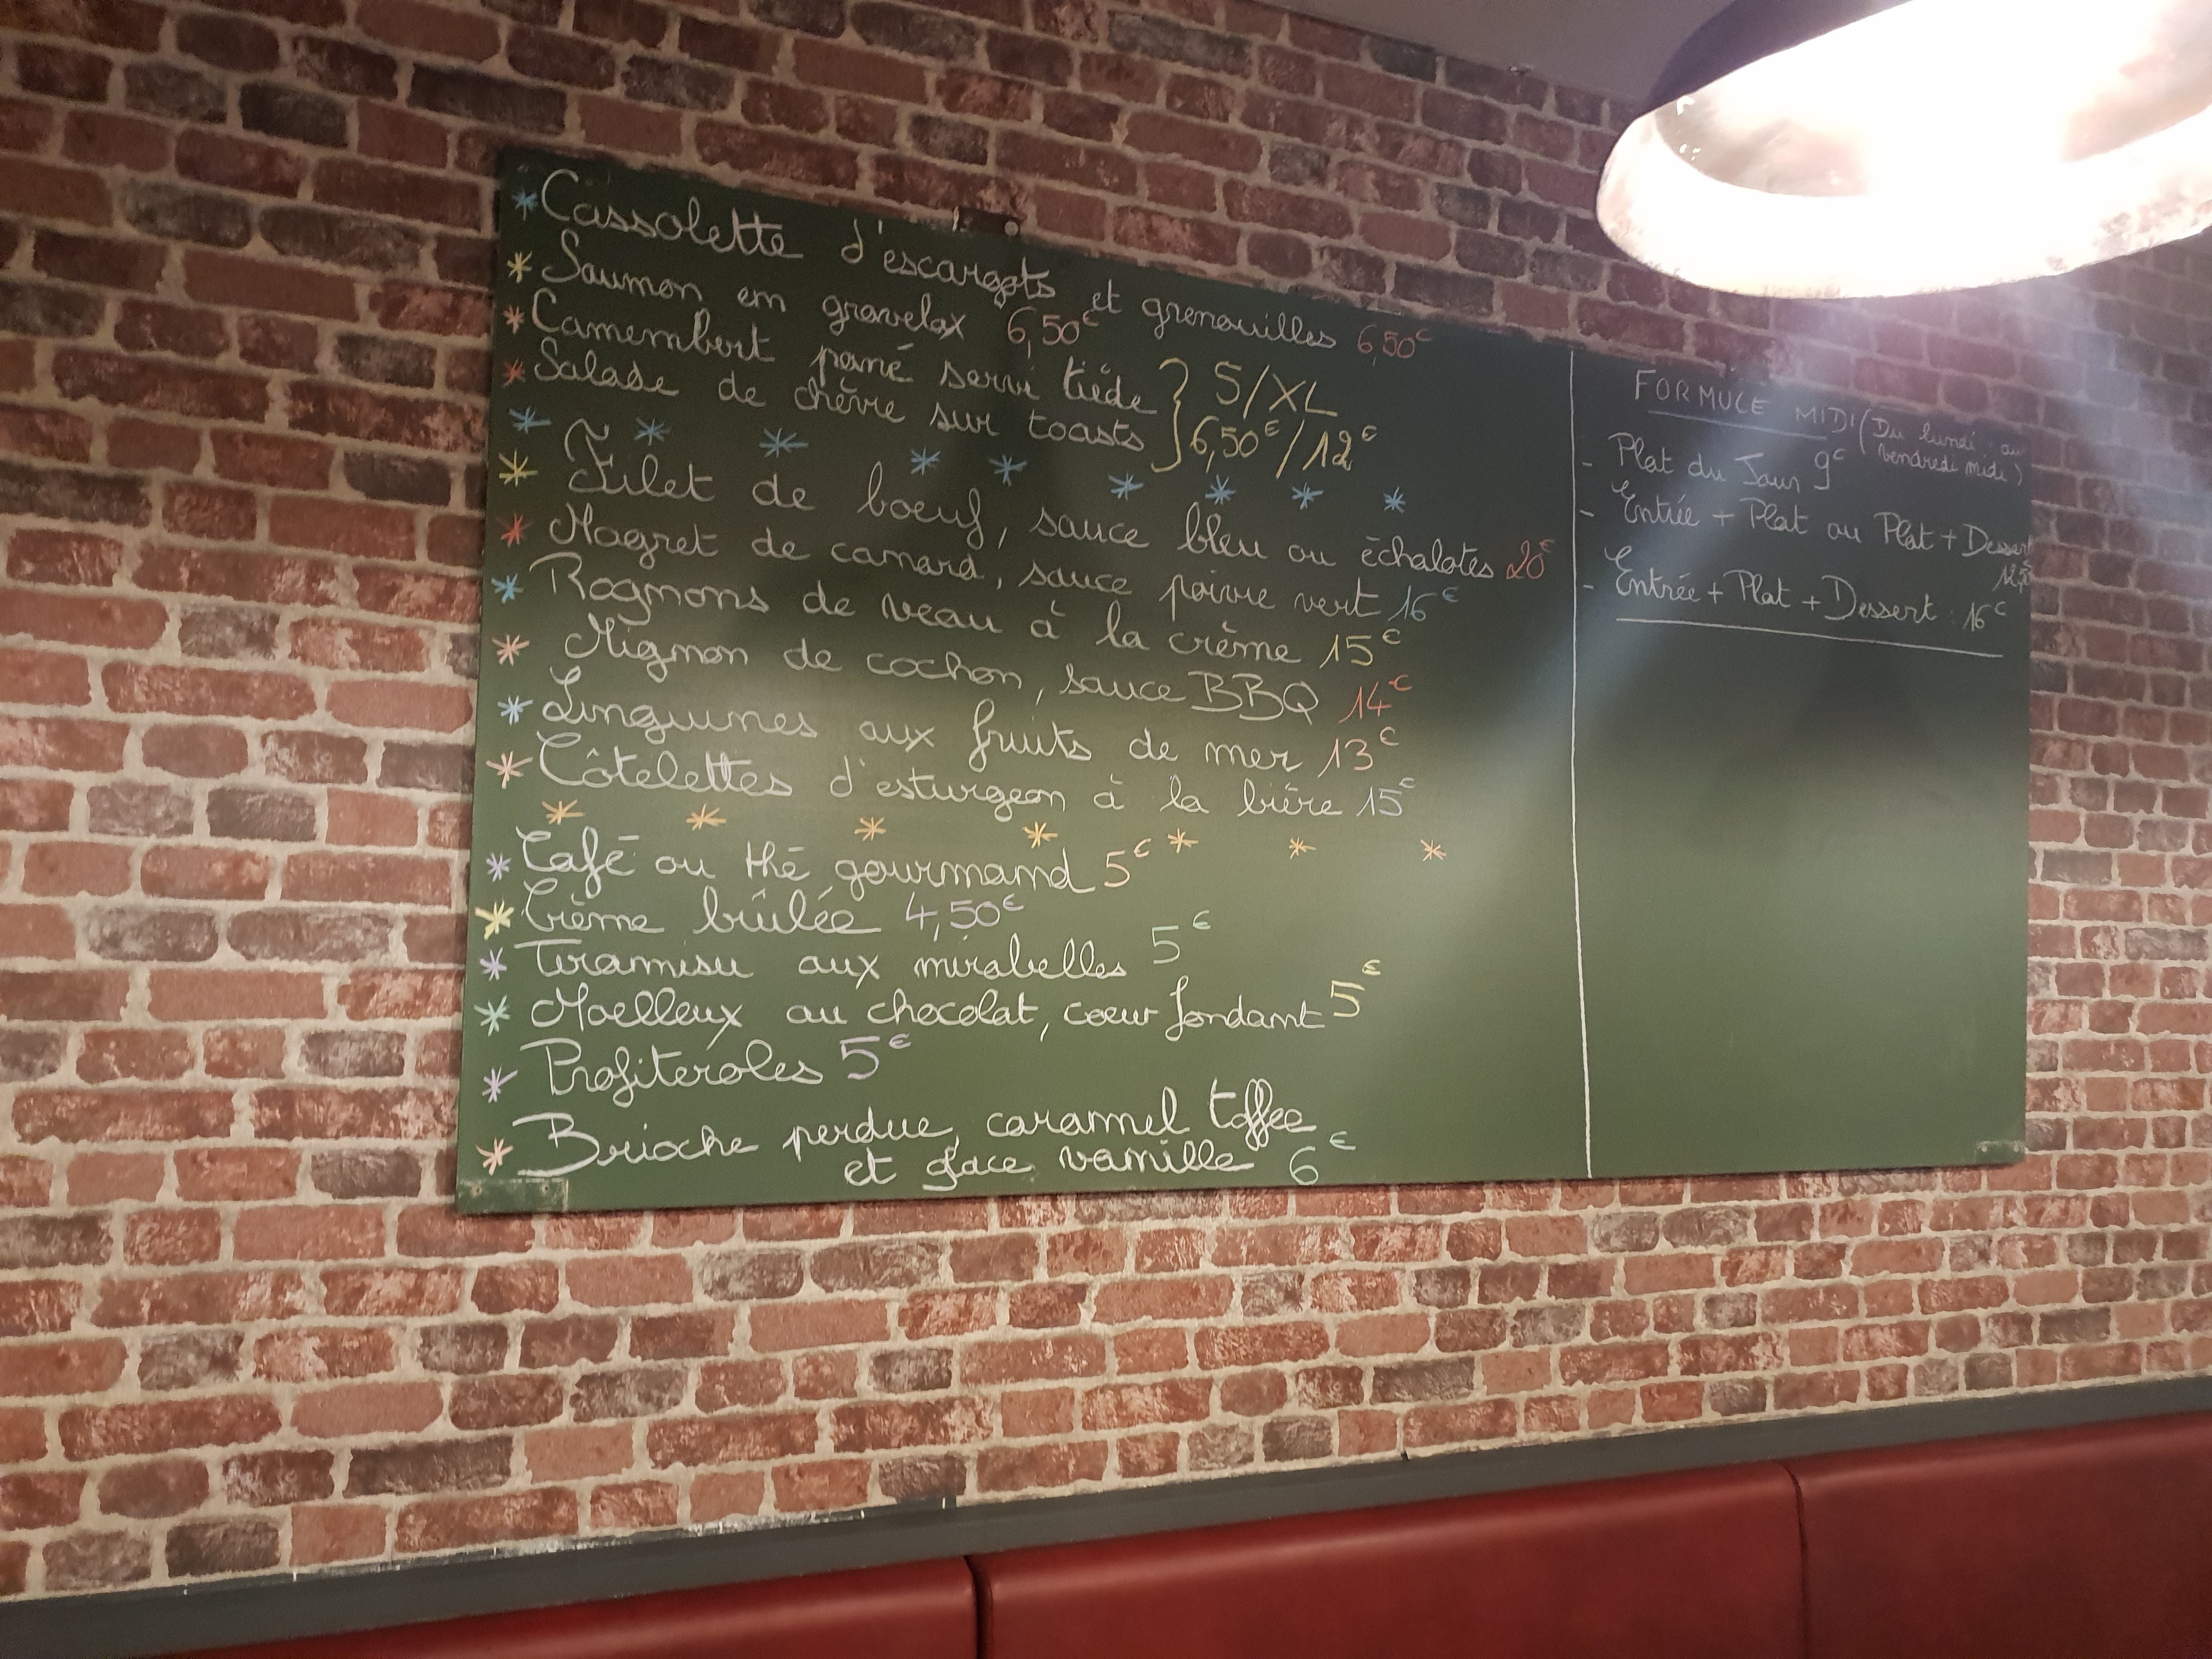 * Cassolette d'escargots et grenouilles 6,50€
* Saumon en gravelax 6,50€
* Camembert pané servi tiède } S/XL
* Salade de chèvre sur toasts } 6,50€/12€
* * * * * * * * *
* Filet de boeuf, sauce bleu ou échalotes 20€
* Magret de canard, sauce poivre vert 16€
* Rognons de veau à la crème 15€
* Mignon de cochon, sauce BBQ 14€
* Linguines aux fruits de mer 13€
* Côtelettes d'esturgeon à la bière 15€
* * * * * * *
* Café ou thé gourmand 5€
* Crème brûlée 4,50€
* Tiramisu aux mirabelles 5€
* Moelleux au chocolat, coeur fondant 5€
* Profiteroles 5€
* Brioche perdue, caramel toffee
et glace vanille 6€
FORMULE MIDI (Du lundi au
vendredi midi)
- Plat du Jour 9€
- Entrée + Plat ou Plat + Dessert
- Entrée + Plat + Dessert : 16€